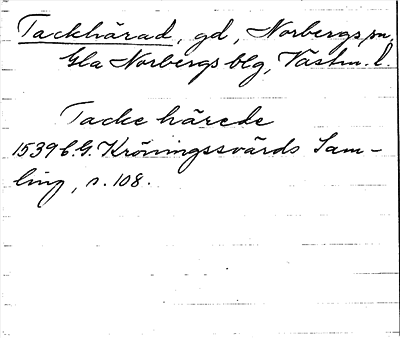 Tackhärad, gd, Norbergs sn,
Gla Norbergs blg, Västm. l.
Tacke härede
1539 C.G. Kröningssvärds Sam-
ling, s. 108.